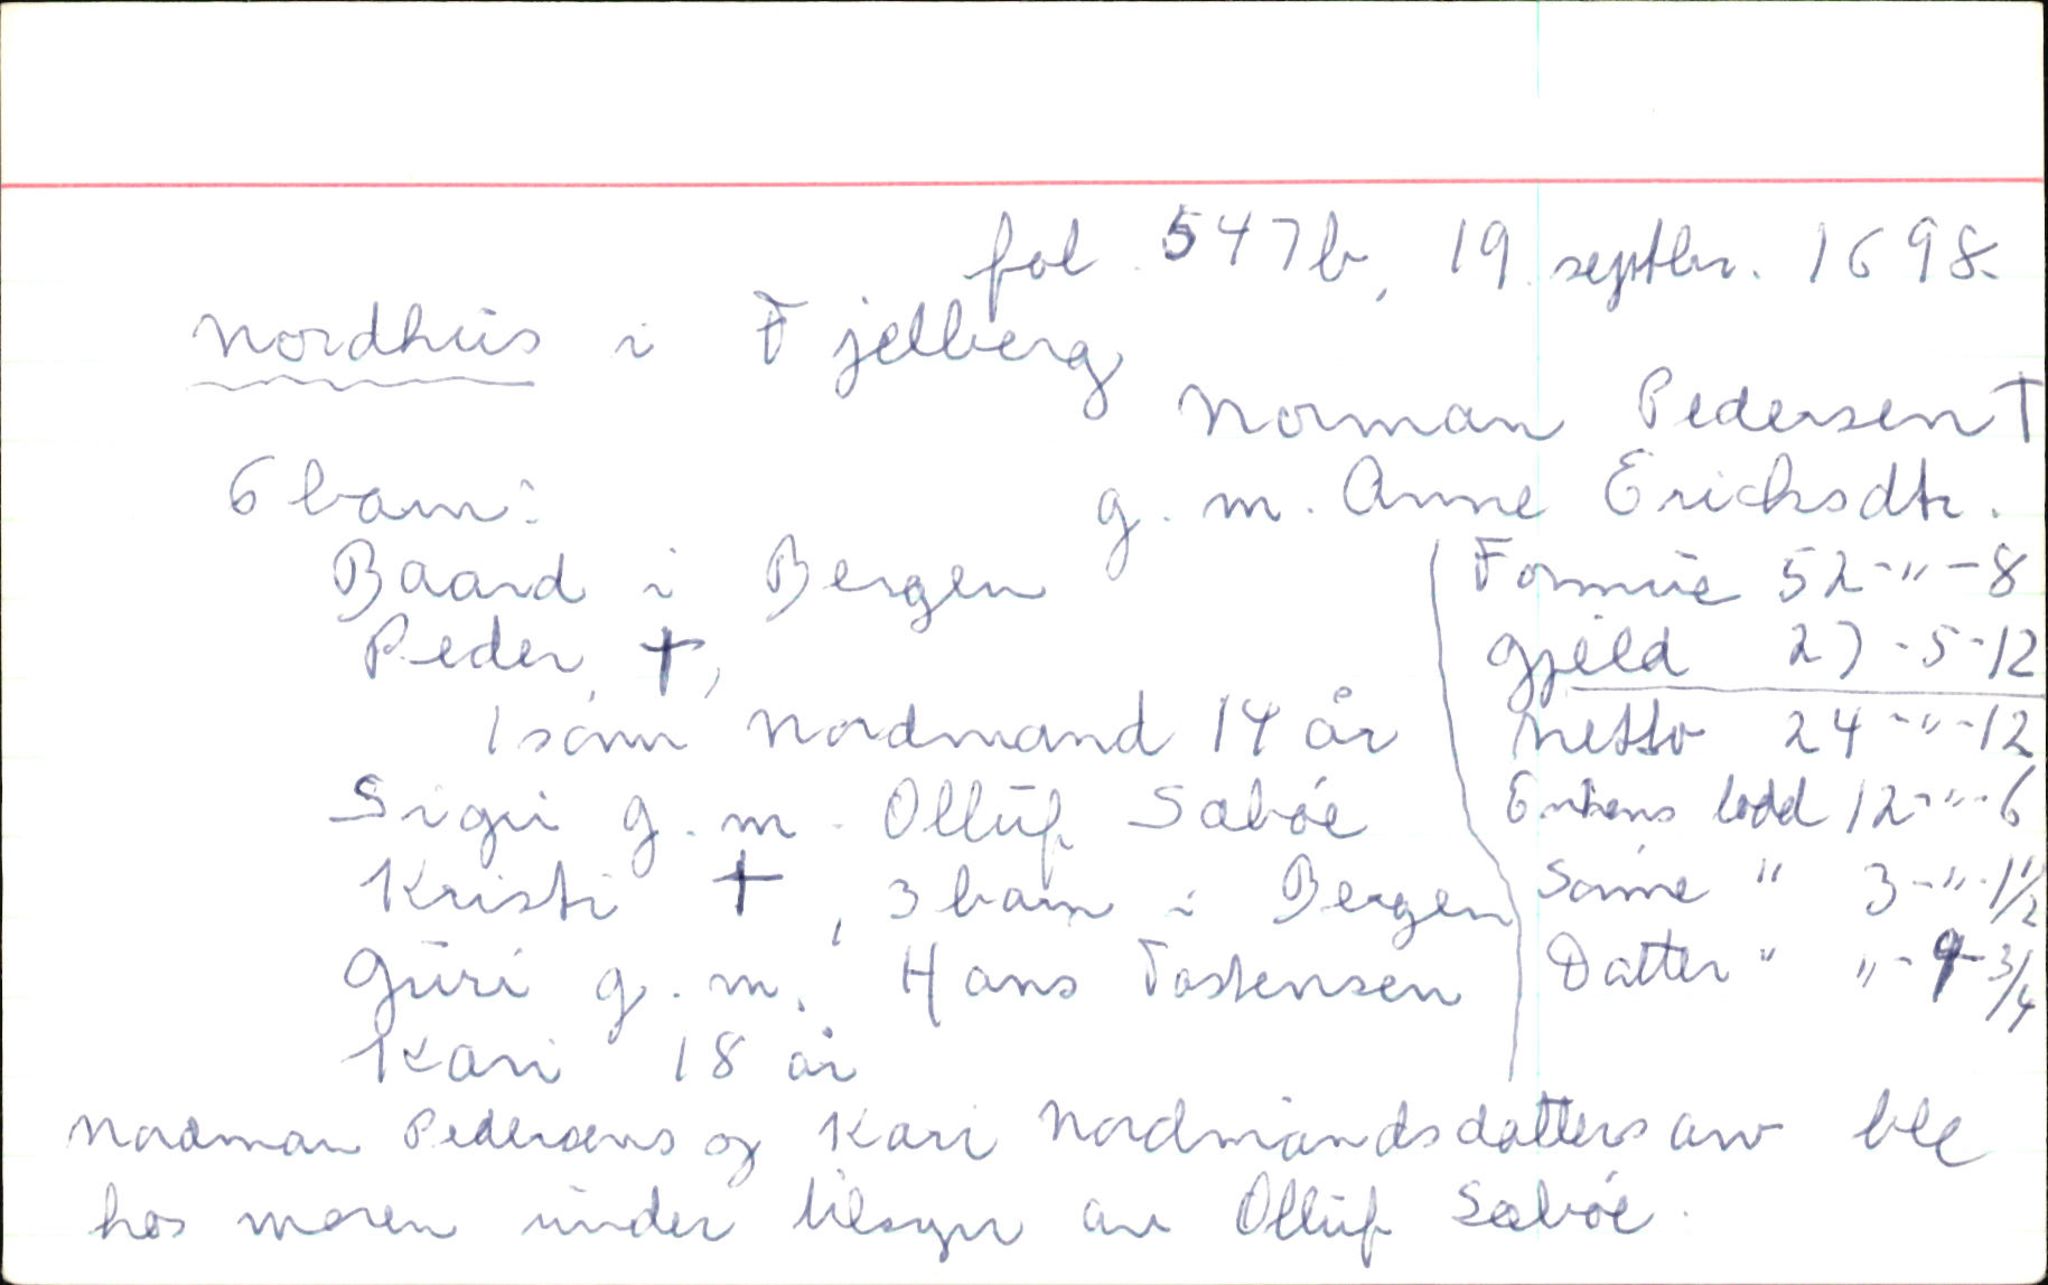 fol. 547b, 19 septbr. 1698.
Nordhus i Fjelberg
Norman Pedersen †
6 barn: g. m. Anne Ericksdtr.
Baard i Bergen
Peder †,
1 sønn Nordmand 14 år
Sigri g. m. Olluf Sæbøe
Kristi †, 3 barn i Bergen
Guri g. m. Hans Tostensen
Kari 18 år
Formue 52-"-8
Gjeld 27-5-12
Netto 24-"-12
Enkens lodd 12-"-6
Sønne " 3-"-1 1/2
Datter " "-9-3/4
Nordman Pedersens og Kari Nordmandsdatters arv ble
hos moren under tilsyn av Olluf Sæbøe.